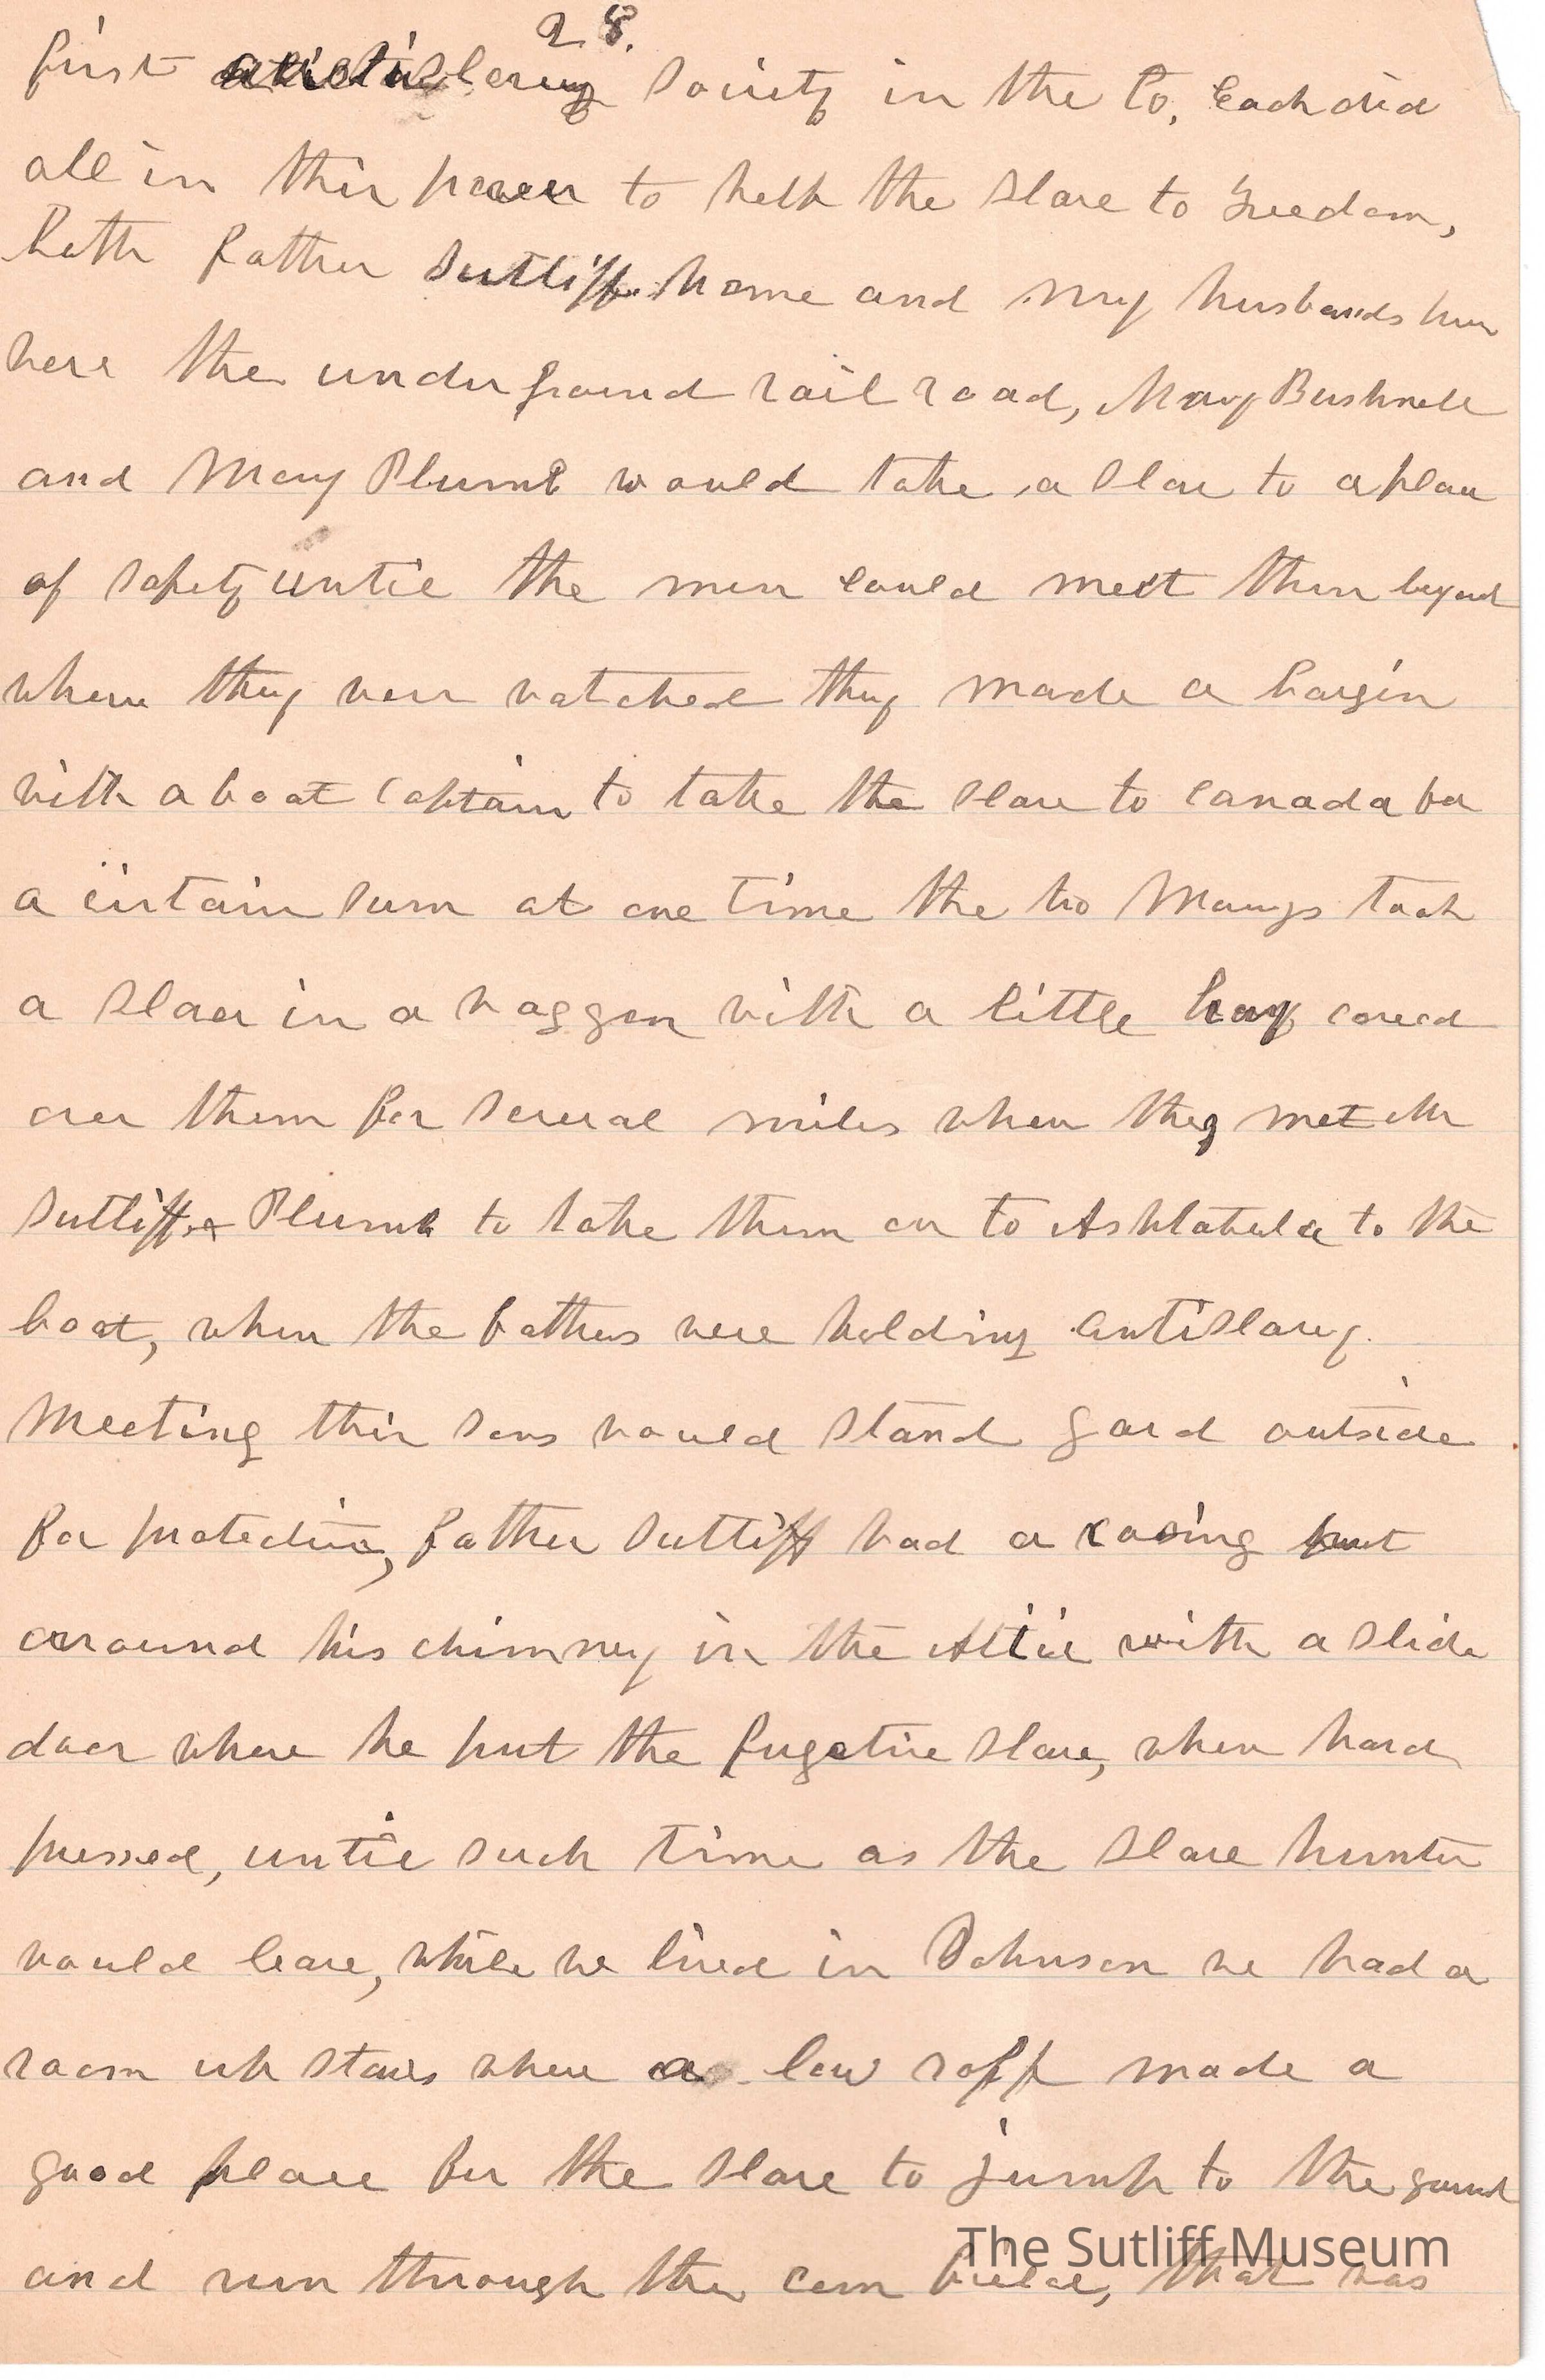 28.
first antislavery Society in the Co, Each did
all in thir power to help the Slave to Freedom,
both father Sutliff home and my husbands
here the underground rail road, Mary Bushnell
and Mary Plumb would take a Slave to a place
of Safety until the men could meet them beyond
where they were watched they made a bargin
with a boat Captain to take the Slave to Canada for
a certain Sum at one time the two Marys took
a Slave in a waggon with a little hay covered
over them for Several miles when they met Mr
Sutliff & Plumb to take them on to Ashtabula to the
boat, when the fathers were holding antislavery
Meeting thir Sons would Stand gard outside
for protection, father Sutliff had a casing put
around his chimney in the Attic with a Slide
door where he put the fugetive Slave, when hard
pressed, until Such Time as the Slave hunter
would leave, while we lived in Johnson we had a
room up Stares where a low roff made a
good place for the Slave to jump to the ground
and run through the corn field, that was
The Sutliff Museum